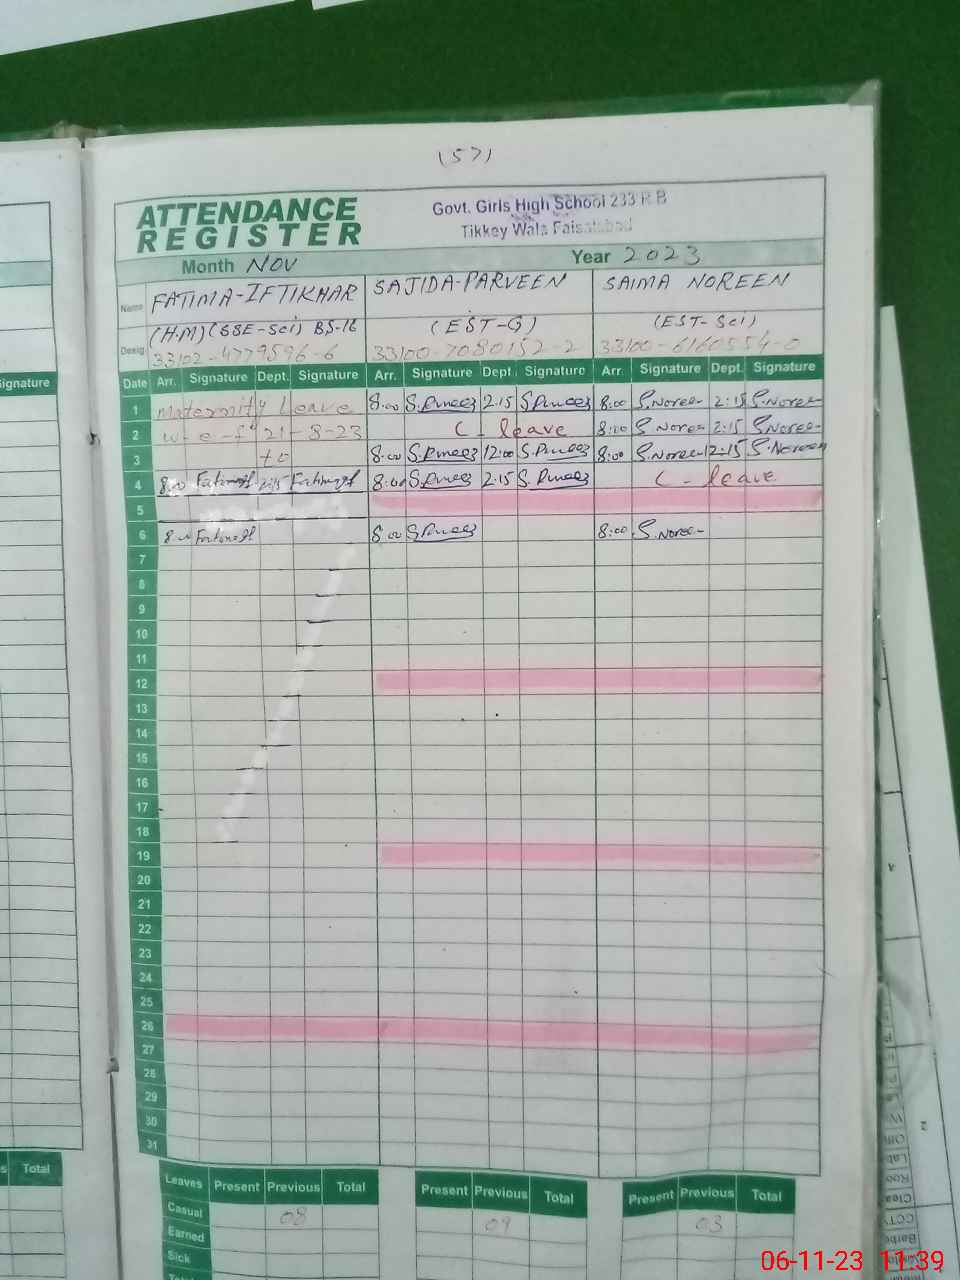 (57)
ATTENDANCE
REGISTER
Govt. Girls High School 233 R.B
Tikkey Wala Faisalabad
Month NOV Year 2023
Name FATIMA-IFTIKHAR SAJIDA-PARVEEN SAIMA NOREEN
Desig. (H.M)(SSE-Sci) BS-16 (EST-G) (EST-Sci)
33102-4779596-6 33100-7080152-2 33100-6160554-0
Signature
Date Arr. Signature Dept. Signature Arr. Signature Dept. Signature Arr. Signature Dept. Signature
1 Maternity Leave 8:00 2:15 8:00 S.Noree 2:15 S.Noree
2 w-e-f 21-8-23 C - leave 8:00 S.Noree 2:15 S.Noree
3 to 8:00 12:00 8:00 S.Noree 12:15 S.Noreen
4 8:00 2:15 8:00 2:15 C - leave
5
6 8:00 8:00 8:00 S.Noree
7
8
9
10
11
12
13
14
15
16
17
18
19
20
21
22
23
24
25
26
27
28
29
30
31
Total
Leaves Present Previous Total Present Previous Total Present Previous Total
Casual 08 09 03
Earned
Sick
06-11-23 11:39